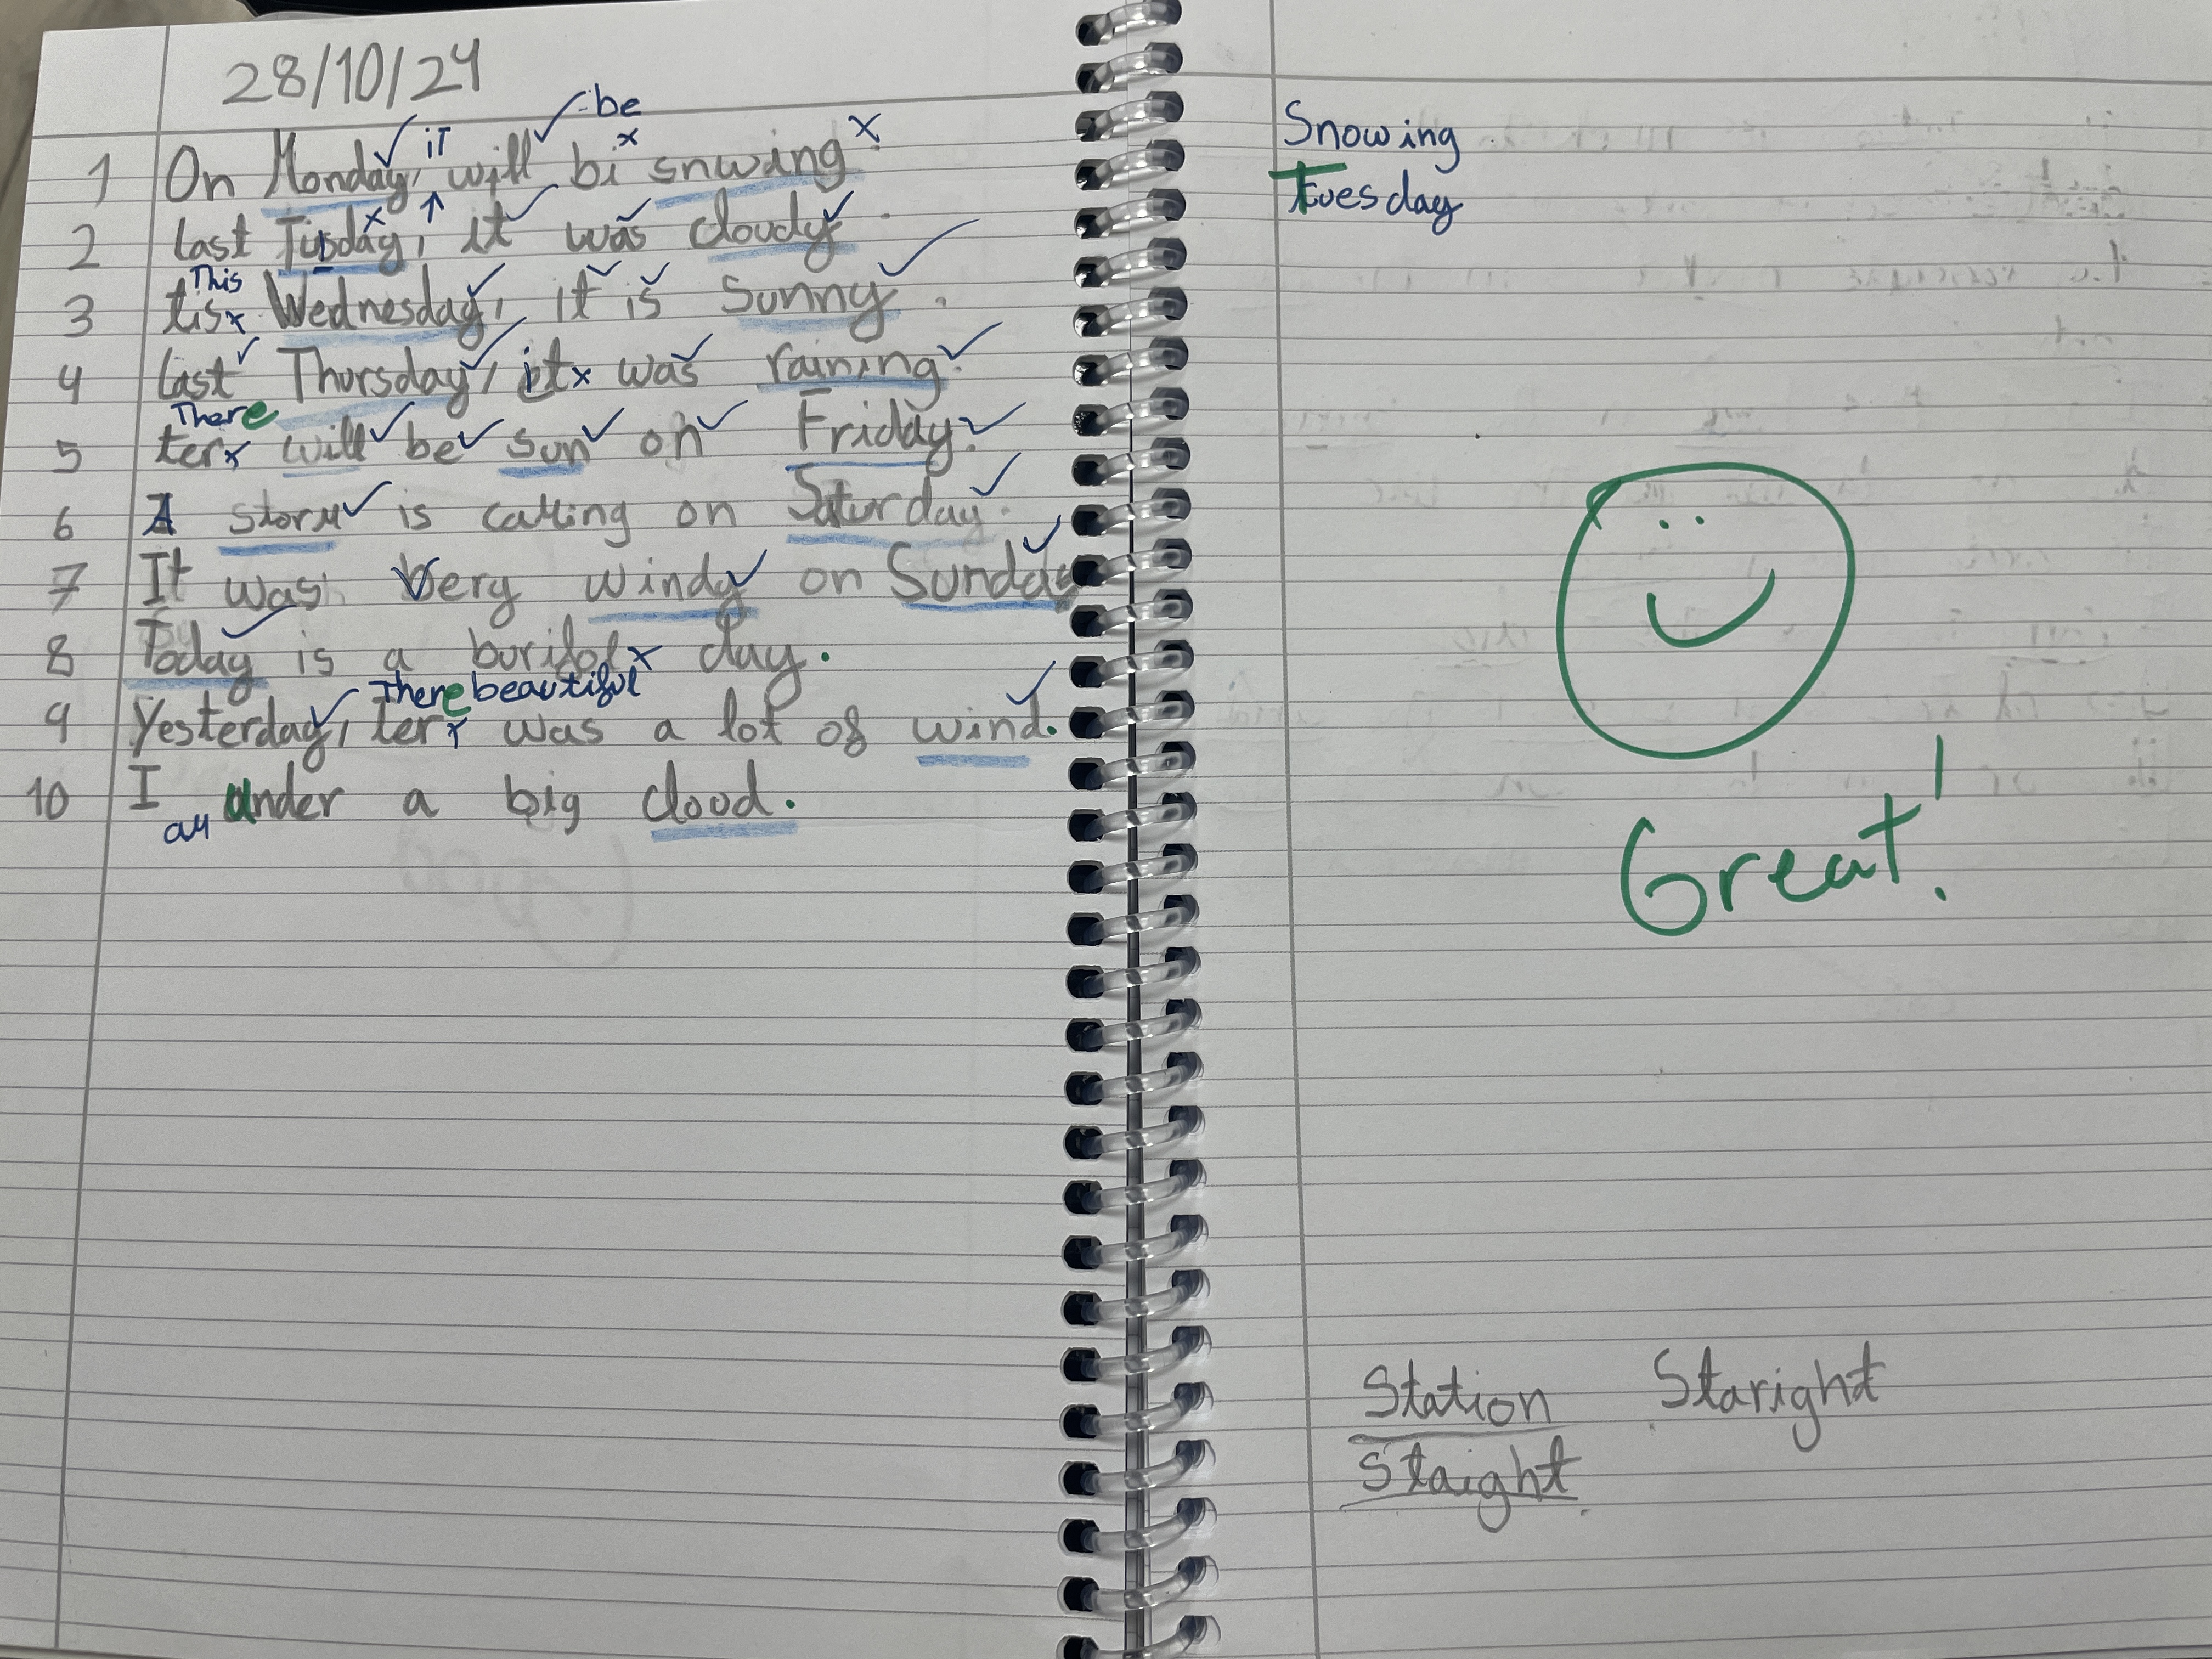 28/10/24
be
it
1 On Monday, will bi snwing.
2 last Tusday, it was cloudy.
This
3 tis Wednesday, it is sunny.
4 last Thursday, it was raining.
There
5 ter will be sun on Friday.
6 A storm is calling on Saturday.
7 It was very windy on Sunday
8 Today is a burifol day.
There beautiful
9 Yesterday, ter was a lot of wind.
10 I under a big cloud.
am
Snowing
Tuesday
Great!
Station Staright
Staight